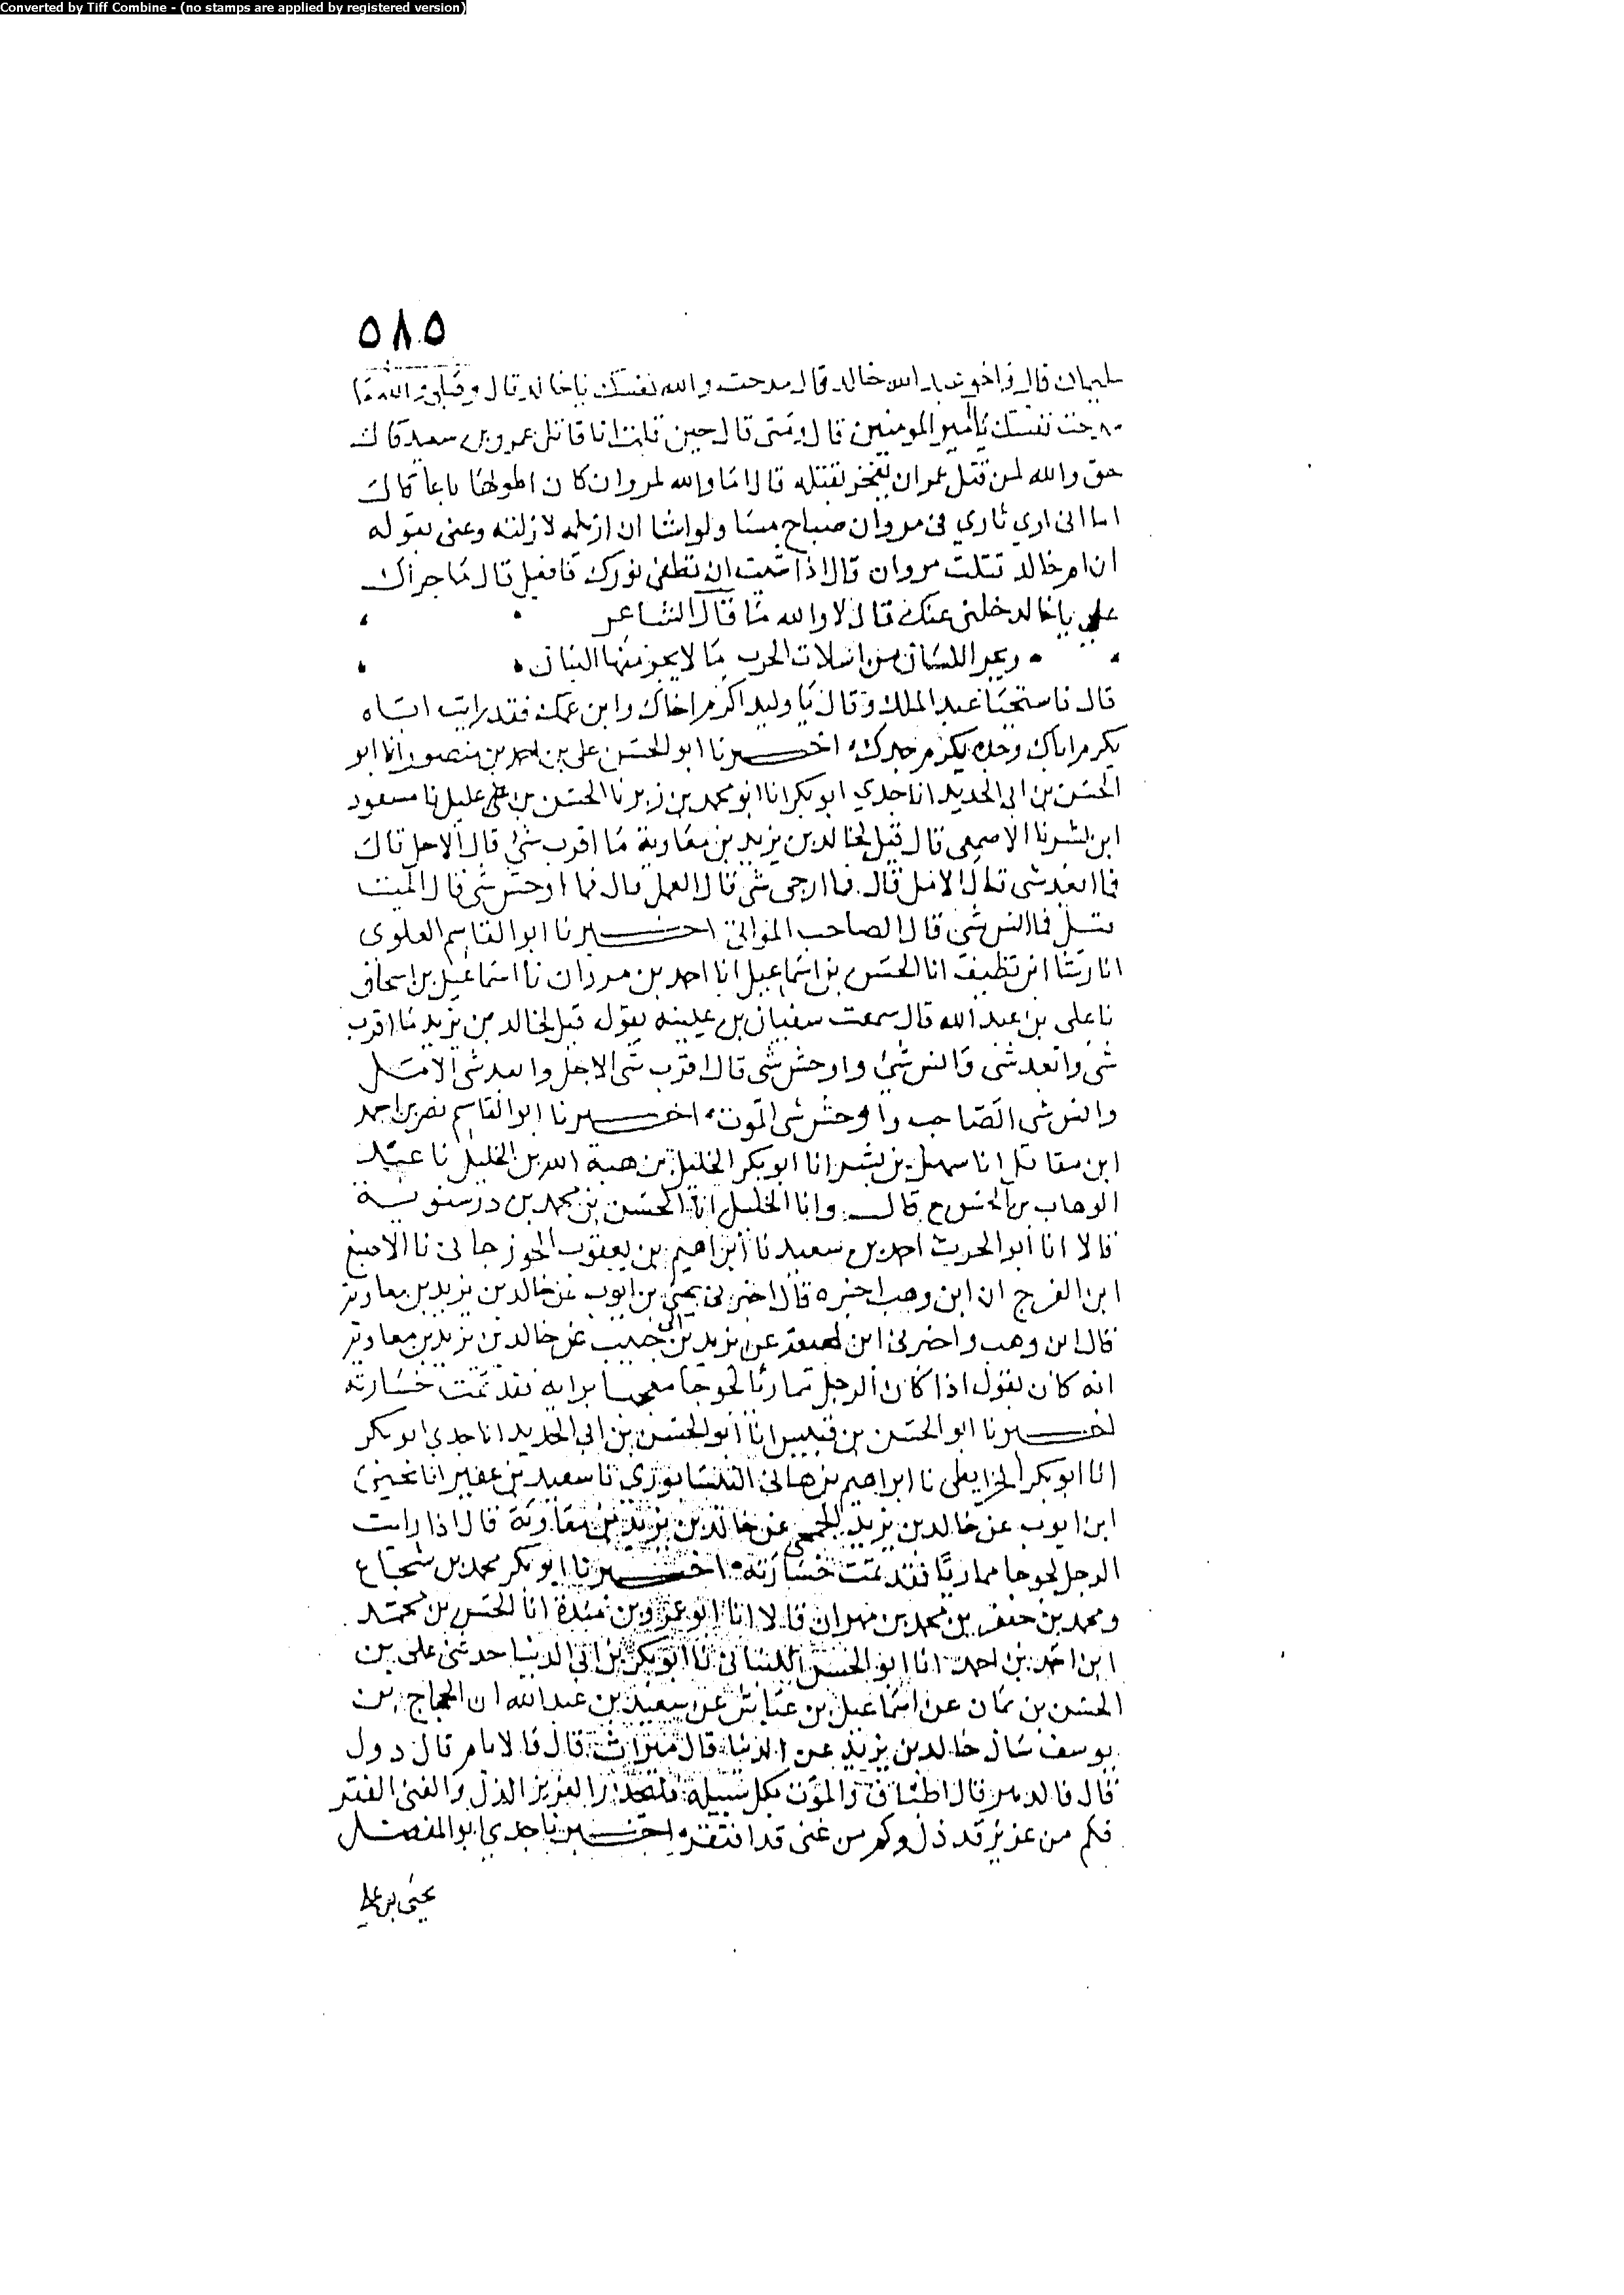 Converted by Tiff Combine - (no stamps are applied by registered version)
٥٨٥
سليمان قال واخو عبد الله خالد قال مدحت والله نفسك يا خالد قال وقبلي والله ما
مدحت نفسك يا امير المومنين قال ومتى قال حين قلت انا قاتل عمرو بن سعيد قال
حق والله لمن قتل عمرا ان يفخر بقتله قال اما والله لمروان كان اطولها باعا قال
اما انى ارى ثاري في مروان صباح مسا ولو اشا ان ازيله لازلته وعنى بقوله
ان ام خالد قتلت مروان قال اذا شيت ان تطفى نورك فافعل قال ما جراك
علي يا خالد خلنى عنك قال لا والله ما قال الشاعر
ويجر اللسان من اسلات الحرب ما لا يجر منها البنان
قال فاستحيا عبد الملك وقال يا وليد اكرم اخاك وابن عمك فقد رايت اباه
يكرم اباك وجده يكرم جدك اخبرنا ابو الحسن على بن احمد بن منصور انا ابو
الحسن بن ابى الحديد انا جدي ابو بكر انا ابو محمد بن زبر نا الحسن بن علي عليل نا مسعود
ابن بشر نا الاصمعى قال قيل لخالد بن يزيد بن معاوية ما اقرب شي قال الاجل قال
فما ابعد شى قال الامل قال فما ارجى شى قال العمل قال فما اوحش شى قال الميت
قيل فما انس شي قال الصاحب المواتى اخبرنا ابو القاسم العلوى
انا رشا ابن نظيف انا الحسن بن اسماعيل انا احمد بن مروان نا اسماعيل بن اسحاق
نا على بن عبد الله قال سمعت سفيان بن عيينه يقول قيل لخالد بن يزيد ما اقرب
شى وابعد شى وانس شي واوحش شى قال اقرب شى الاجل وابعد شى الامل
وانس شى الصاحب واوحش شى الموت اخبرنا ابو القاسم نصر بن احمد
ابن مقاتل انا سهل بن بشر انا ابو بكر الخليل بن هبة الله بن الخليل نا عبد
الوهاب بن الحسن ح قال وانا الخليل انا الحسن بن محمد بن درستويه
قالا انا ابو الحرث احمد بن سعيد نا ابراهيم بن يعقوب الجوزجانى نا الاصبغ
ابن الفرج ان ابن وهب اخبره قال اخبرنى يحيى بن ايوب عن خالد بن يزيد بن معاوية
قال ابن وهب واخبرنى ابن لهيعة عن يزيد بن ابى حبيب عن خالد بن يزيد بن معاوية
انه كان يقول اذا كان الرجل مماريا لجوجا معجبا برايه فقد تمت خسارته
اخبرنا ابو الحسن بن قبيس انا ابو الحسن بن ابى الحديد انا جدي ابو بكر
انا ابو بكر الخرايطى نا ابراهيم بن هانى النيسابوري نا سعيد بن عفير انا يحيى
ابن ايوب عن خالد بن يزيد الجمحى عن خالد بن يزيد بن معاوية قال اذا رايت
الرجل لجوجا مماريا فقد تمت خسارته اخبرنا ابو بكر محمد بن شجاع
ومحمد بن جعفر بن محمد بن مهران قالا انا ابو عمرو بن مندة انا الحسن بن محمد
ابن احمد بن احمد انا ابو الحسن اللنبانى نا ابو بكر بن ابى الدنيا حدثنى على بن
الحسن بن عن اسماعيل بن عياش عن سعيد بن عبد الله ان الحجاج بن
يوسف سال خالد بن يزيد عن الدنيا قال ميراث قال فالايام قال دول
قال فالدهر قال اطباق والموت بكل سبيله فليحذر العزيز الذل والغنى الفقر
فكم من عزيز قد ذل وكم من غنى قد افتقر اخبرنا جدي ابو المفضل
يحيى بن علي